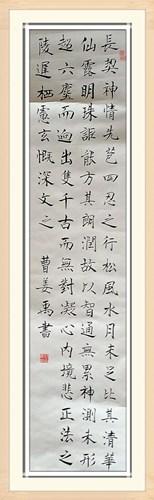 長契神情先苞四忍之行松風水月未足比其清華
仙露明珠詎能方其朗潤故以智通無累神測未形
超六塵而迥出雙千古而無對凝心內境悲正法之
陵遲栖慮玄慨深文之 曹姜禹書